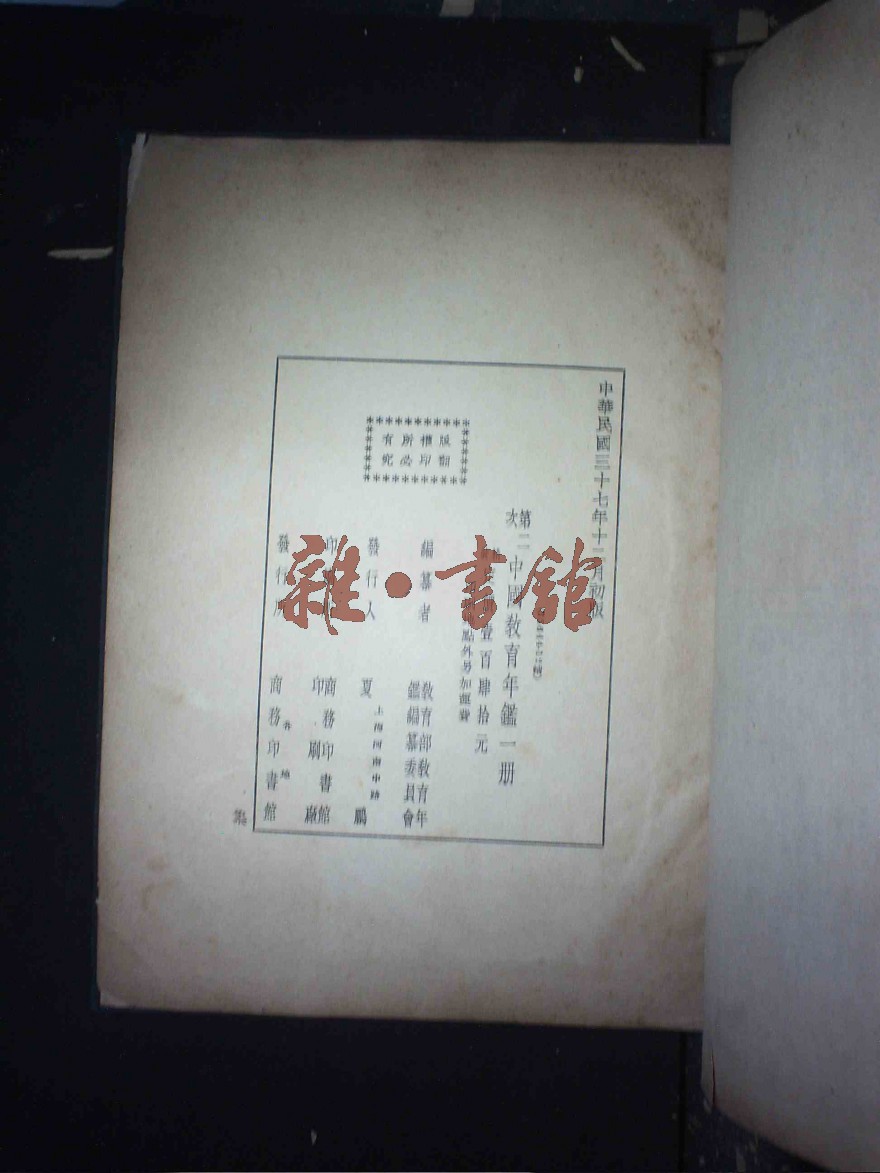 中華民國三十七年十二月初版
第二次中國教育年鑑一册
壹百肆拾元
點外另加運費
版權所有
翻印必究
編纂者 教育部教育年鑑編纂委員會
發行人 夏鵬
上海河南中路
商務印書館印刷廠
發行所 各地 商務印書館
雜·書館